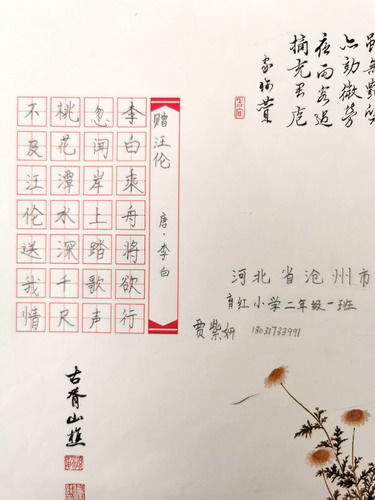 亦効微勞
夜雨客過
摘充君庖
赠汪伦
唐·李白
李白乘舟将欲行
忽闻岸上踏歌声
桃花潭水深千尺
不及汪伦送我情
河北省沧州市
育红小学二年级一班
贾紫妍 13031733991
古胥山樵